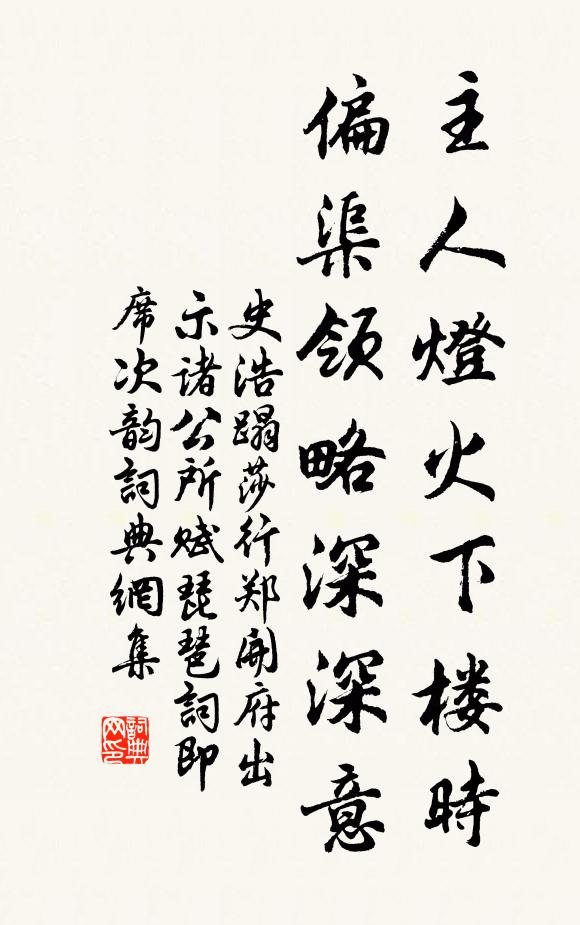 主人燈火下楼時
偏渠領略深深意
史浩蹋莎行郑開府出
示諸公所赋琵琶詞即
席次韵詞典網集
詞典
网印